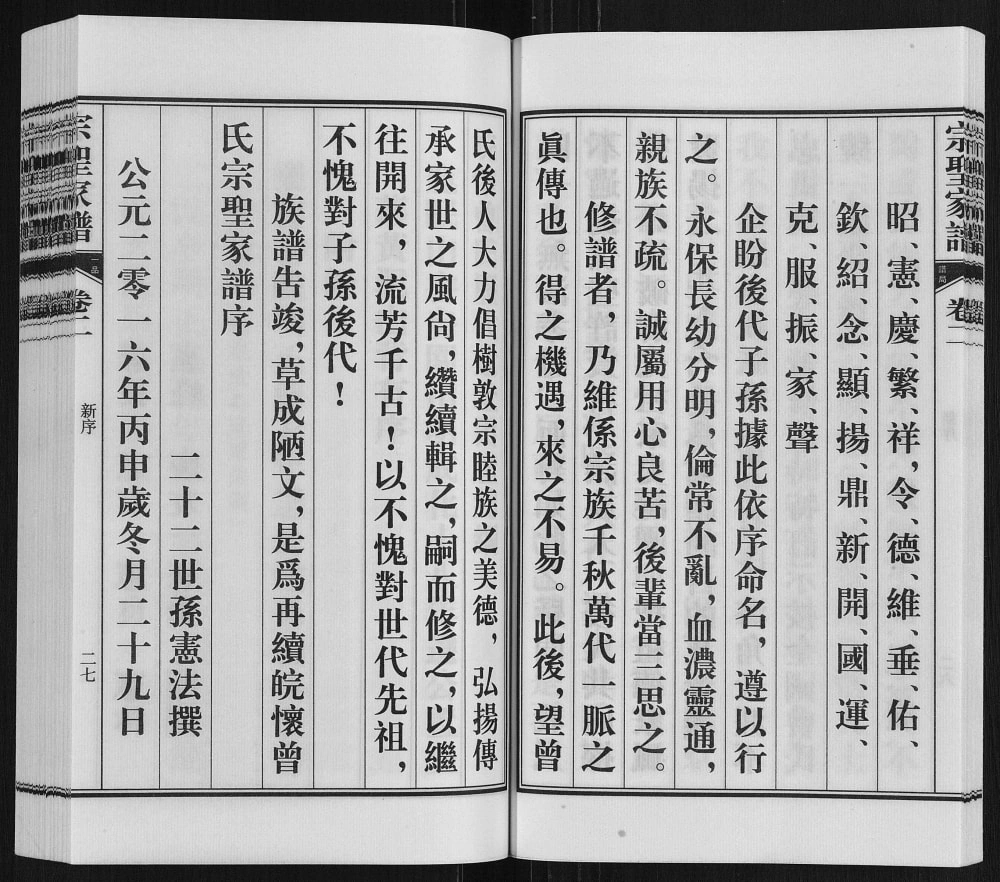 宗聖家譜
譜局
卷二
昭、憲、慶、繁、祥，令、德、維、垂、佑、
欽、紹、念、顯、揚、鼎、新、開、國、運、
克、服、振、家、聲
企盼後代子孫據此依序命名，遵以行
之。永保長幼分明，倫常不亂，血濃靈通，
親族不疏。誠屬用心良苦，後輩當三思之。
修譜者，乃維係宗族千秋萬代一脈之
眞傳也。得之機遇，來之不易。此後，望曾
氏後人大力倡樹敦宗睦族之美德，弘揚傳
承家世之風尙，纘續輯之，嗣而修之，以繼
往開來，流芳千古！以不愧對世代先祖，
不愧對子孫後代！
族譜告竣，草成陋文，是爲再續皖懷曾
氏宗聖家譜序
二十二世孫憲法撰
公元二零一六年丙申歲冬月二十九日
宗聖家譜
一品
卷二
新序
二七